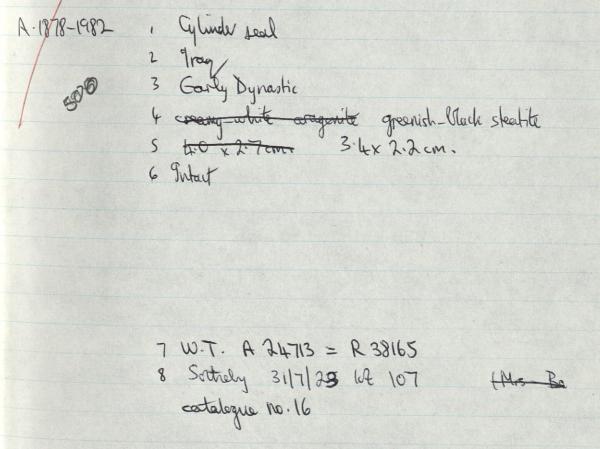 A.1878-1982 1 Cylinder seal
2 Iraq
3 Early Dynastic
4 creamy white aragonite greenish-black steatite
5 4.0 x 2.7 cm. 3.4 x 2.2 cm.
6 Intact
7 W.T. A 24713 = R 38165
8 Sotheby 31/7/23 lot 107 (Mrs Be
catalogue no. 16